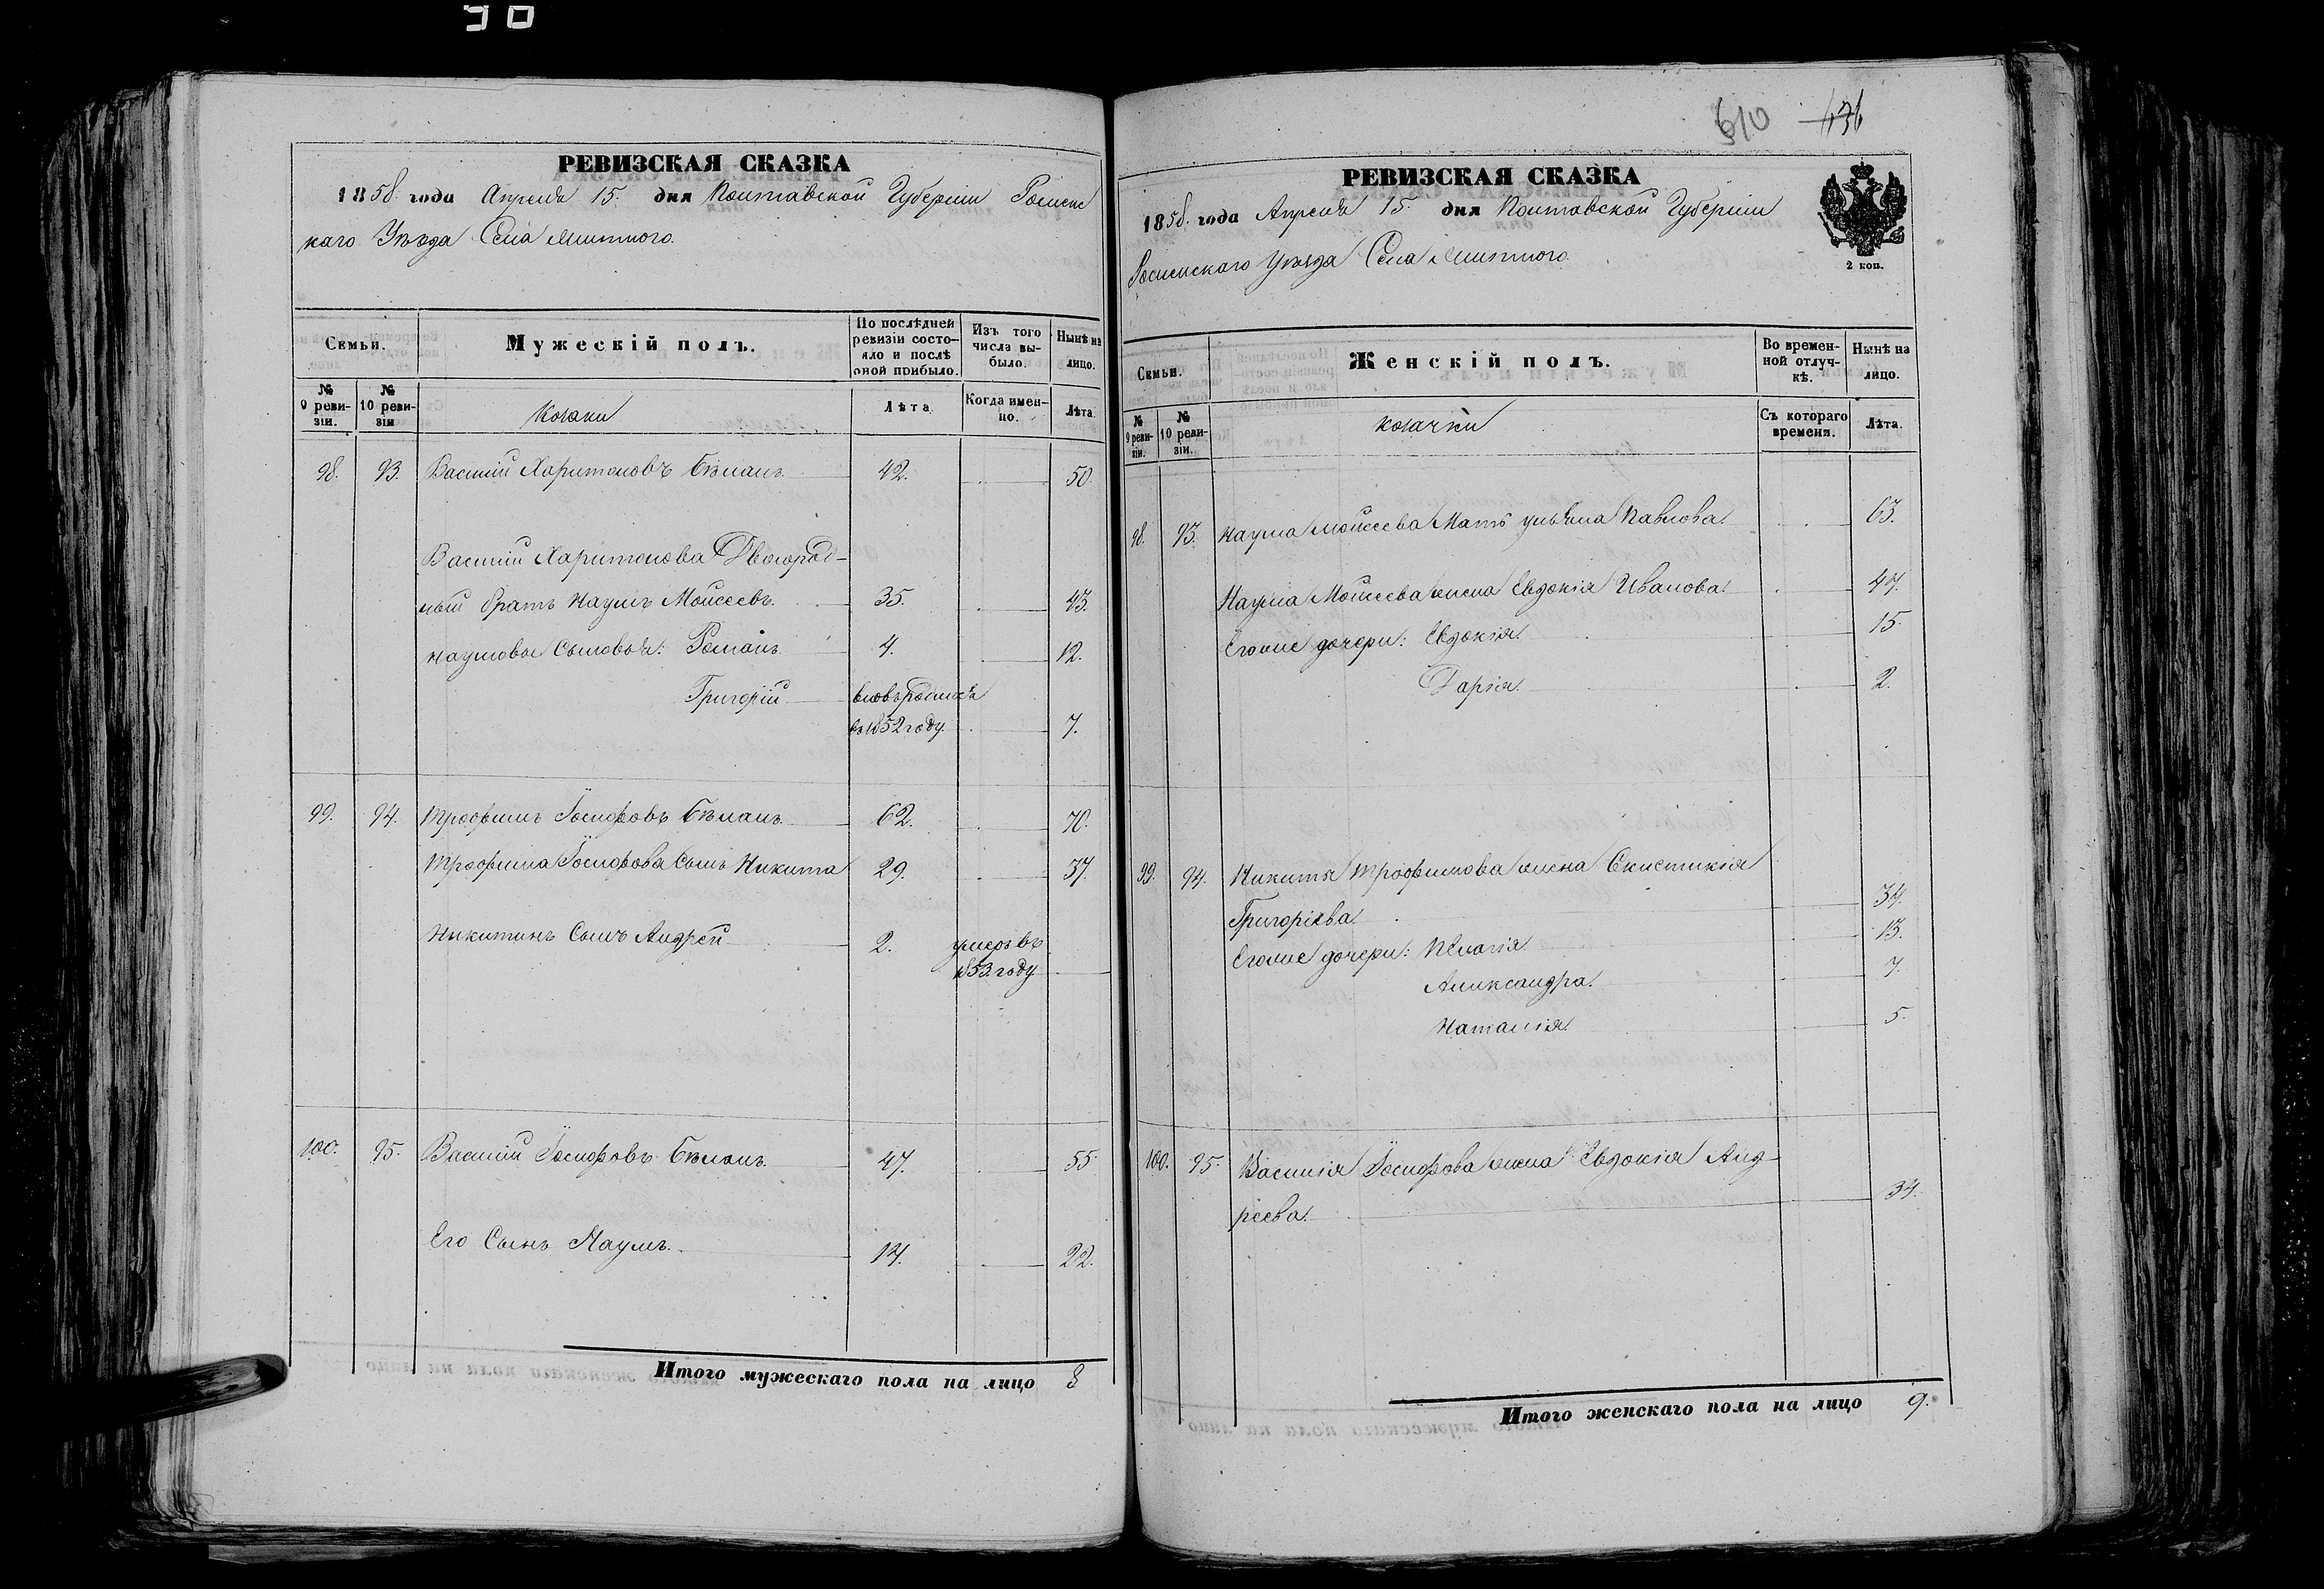 РЕВИЗСКАЯ СКАЗКА
1858 года Апреля 15. дня Полтавской Губернии Роменс
каго Уѣзда Села
Семьи.
Мужескій полъ.
По послѣдней ревизіи состояло и послѣ оной прибыло.
Изъ того числа выбыло.
Нынѣ на лицо.
№ 9 ревизіи.
№ 10 ревизіи
Козаки
Лѣта
Когда именно.
Лѣта
98. 93. Василий Харитоновъ Бѣланъ 42. 50.
Василия Харитонова Двоюрод-
ный братъ Наумъ Моисеевъ. 35. 43.
Наумовы Сыновья: Романъ 4. 12.
Григорий вновь родился
въ 1852 году. 7.
99. 94. Трофимъ Іосифовъ Бѣланъ 62. 70.
Трофима Іосифова Сынъ Никита 29. 37.
Никитинъ Сынъ Андрей 2. умеръ въ
1853. году
100. 95. Василий Іосифовъ Бѣланъ 47. 55.
Его Сынъ Наумъ. 14. 22.
Итого мужескаго пола на лицо 8
610 636
РЕВИЗСКАЯ СКАЗКА
1858. года Апреля 15. дня Полтавской Губернии
Роменскаго Уѣзда Села
2 коп.
Семьи.
Женскій полъ.
Во временной отлучкѣ.
Нынѣ на лицо.
№ 9 ревизіи.
№ 10 ревизіи.
козачки
Съ котораго времени.
Лѣта.
98. 93. Наума Моисеева Мать Ульяна Павлова. 63.
Наума Моисеева жена Евдокія Иванова. 47.
Егоже дочери: Евдокія 15.
Дарія. 2.
99. 94. Никиты Трофимова жена
Григоріева. 34.
Егоже дочери: Пелагія 13.
Александра. 7.
Наталія 5.
100. 95. Василія Іосифова жена Евдокія Анд-
реева. 34.
Итого женскаго пола на лицо 9.